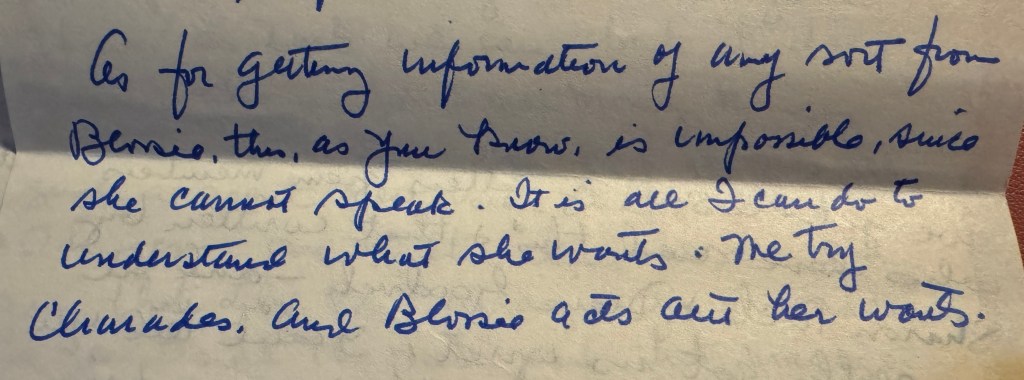 As for getting information of any sort from
Blossie, this, as you know, is impossible, since
she cannot speak. It is all I can do to
understand what she wants. We try
Charades. And Blossie acts out her wants.